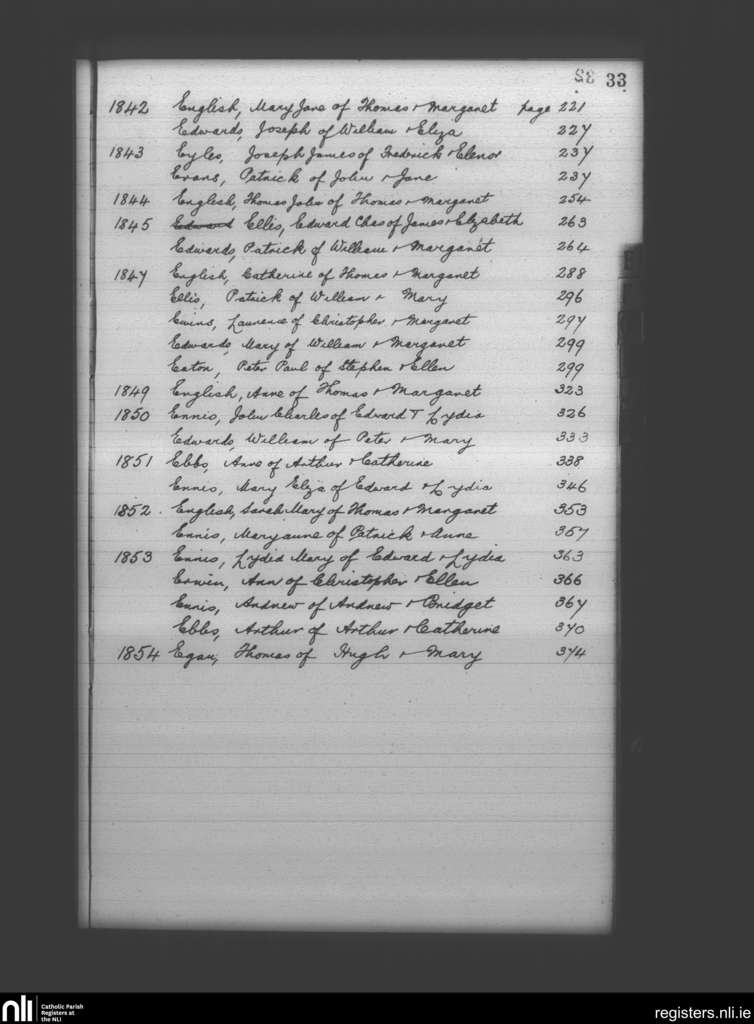 33
1842 English, Mary Jane of Thomas & Margaret page 221
Edwards, Joseph of William & Eliza 227
1843 Eyles, Joseph James of Frederick & Elenor 237
Evans, Patrick of John & Jane 237
1844 English, Thomas John of Thomas & Margaret 254
1845 Edward Ellis, Edward Chas of James & Elizabeth 263
Edwards, Patrick of William & Margaret 264
1847 English, Catherine of Thomas & Margaret 288
Ellis, Patrick of William & Mary 296
Ewins, Laurence of Christopher & Margaret 297
Edwards, Mary of William & Margaret 299
Eaton, Peter Paul of Stephen & Ellen 299
1849 English, Anne of Thomas & Margaret 323
1850 Ennis, John Charles of Edward & Lydia 326
Edwards, William of Peter & Mary 333
1851 Ebbs, Anne of Arthur & Catherine 338
Ennis, Mary Eliza of Edward & Lydia 346
1852. English, Sarah Mary of Thomas & Margaret 353
Ennis, Maryanne of Patrick & Anne 357
1853 Ennis, Lydia Mary of Edward & Lydia 363
Erwin, Ann of Christopher & Ellen 366
Ennis, Andrew of Andrew & Bridget 367
Ebbs, Arthur of Arthur & Catherine 370
1854 Egan, Thomas of Hugh & Mary 374
nli
Catholic Parish
Registers at
the NLI
registers.nli.ie